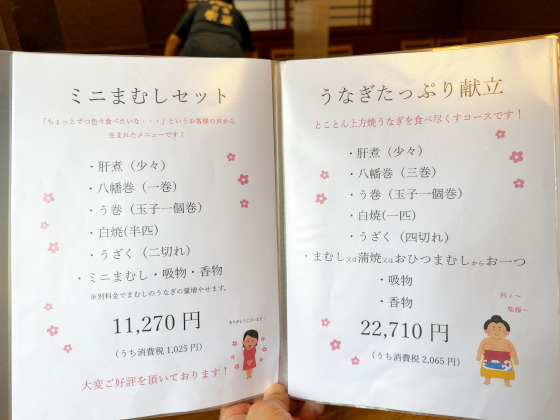 ミニまむしセット
「ちょっとずつ色々食べたいな・・・」というお客様の声から
生まれたメニューです！
・肝煮（少々）
・八幡巻（一巻）
・う巻（玉子一個巻）
・白焼(半匹）
・うざく（二切れ）
・ミニまむし・吸物・香物
※別料金でまむしのうなぎの量増やせます。
11,270 円
（うち消費税 1,025 円）
ありがとうございます！
大変ご好評を頂いております！
うなぎたっぷり献立
とことん上方焼うなぎを食べ尽くすコースです！
・肝煮（少々）
・八幡巻（三巻）
・う巻（玉子一個巻）
・白焼(一匹）
・うざく（四切れ）
・まむし又は蒲焼又はおひつまむしからお一つ
・吸物
・香物
22,710 円
（うち消費税 2,065 円）